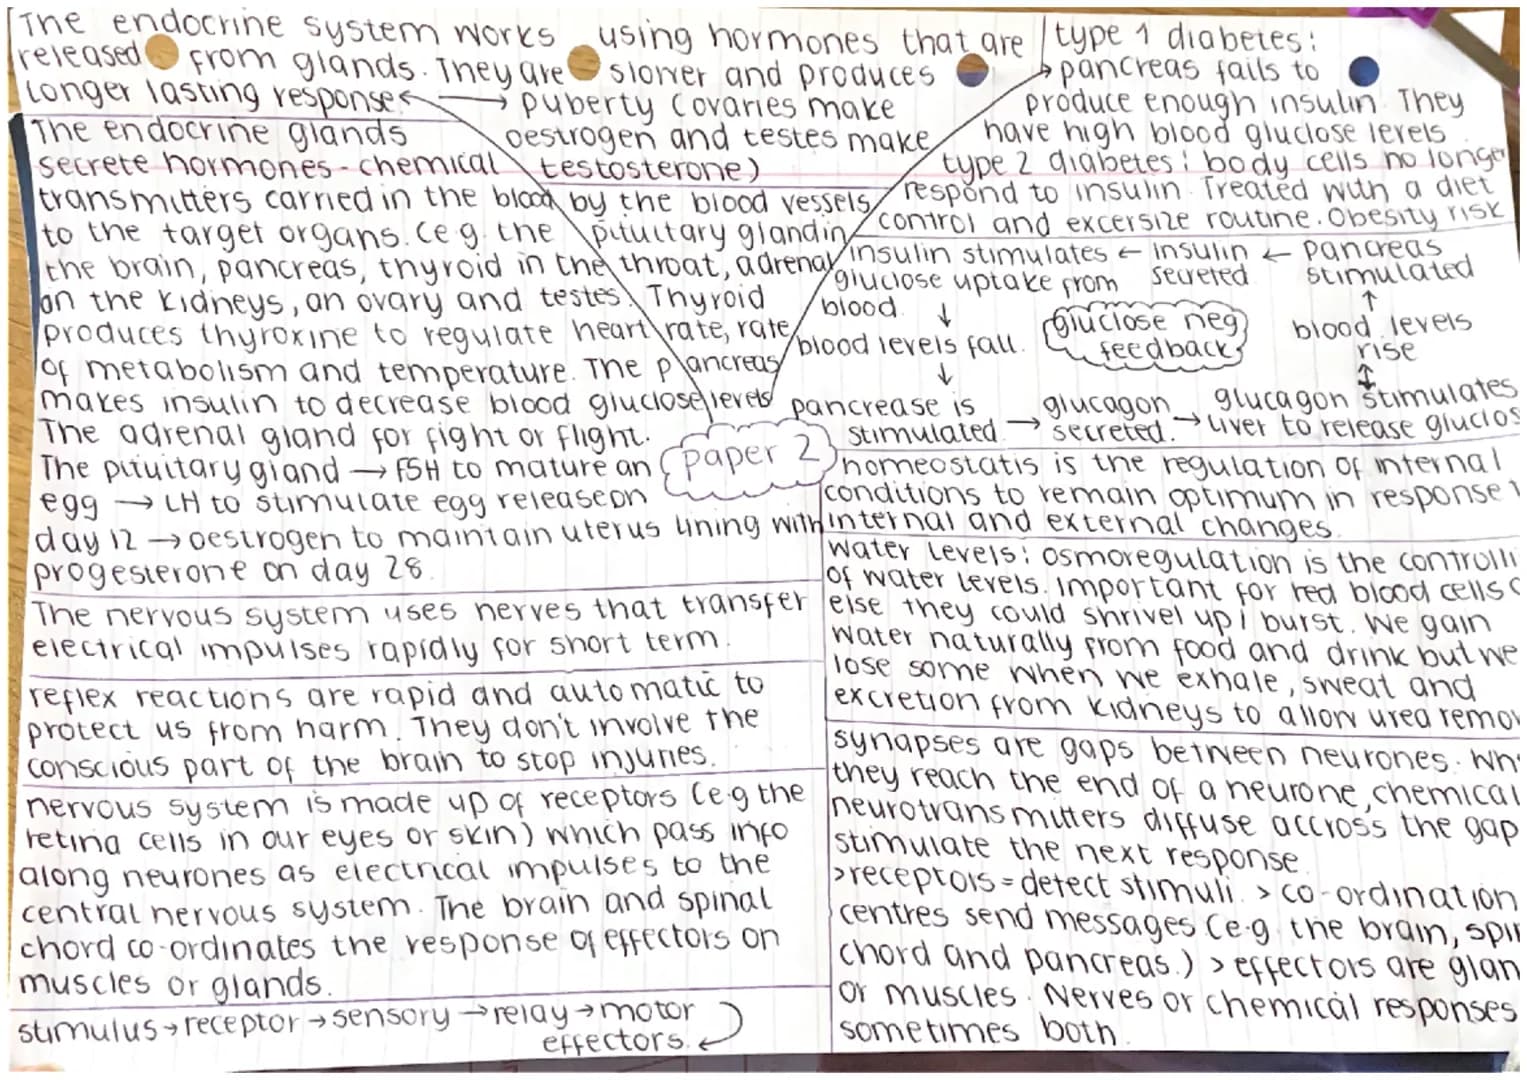 The endocrine system works using hormones that are
released from glands. They are slower and produces
longer lasting response
puberty (ovaries make
oestrogen and testes make
testosterone)
The endocrine glands
secrete hormones - chemical
transmitters carried in the blood by the blood vessels
to the target organs. (e.g. the pituitary gland in
the brain, pancreas, thyroid in the throat, adrenal
on the kidneys, an ovary and testes. Thyroid
produces thyroxine to regulate heart rate, rate
of metabolism and temperature. The pancreas
makes insulin to decrease blood gluclose levels
The adrenal gland for fight or flight.
The pituitary gland → FSH to mature an
egg → LH to stimulate egg release on
day 12 → oestrogen to maintain uterus lining with
progesterone on day 28
The nervous system uses nerves that transfer
electrical impulses rapidly for short term.
reflex reactions are rapid and automatic to
protect us from harm. They don't involve the
conscious part of the brain to stop injuries.
nervous system is made up of receptors (e.g the
retina cells in our eyes or skin) which pass info
along neurones as electrical impulses to the
central nervous system. The brain and spinal
chord co-ordinates the response of effectors on
muscles or glands.
stimulus → receptor → sensory → relay → motor
effectors.
paper 2
type 1 diabetes:
pancreas fails to
produce enough insulin. They
have high blood gluclose levels
type 2 diabetes: body cells no longer
respond to insulin. Treated with a diet
control and excersize routine. Obesity risk
insulin stimulates ← insulin ← pancreas
gluclose uptake from secreted stimulated
blood ↓ ↑
gluclose neg blood levels
feedback rise
blood levels fall.
↓ ↕
pancrease is → glucagon → glucagon stimulates
stimulated secreted. liver to release gluclos
homeostatis is the regulation of internal
conditions to remain optimum in response
internal and external changes.
water levels: osmoregulation is the controlli
of water levels. important for red blood cells
else they could shrivel up / burst. We gain
water naturally from food and drink but we
lose some when we exhale, sweat and
excretion from kidneys to allow urea remov
synapses are gaps between neurones. Wh
they reach the end of a neurone, chemical
neurotransmitters diffuse accross the gap
stimulate the next response.
>receptors = detect stimuli. > co-ordination
centres send messages (e.g. the brain, spin
chord and pancreas.) > effectors are glan
or muscles. Nerves or chemical responses
sometimes both.